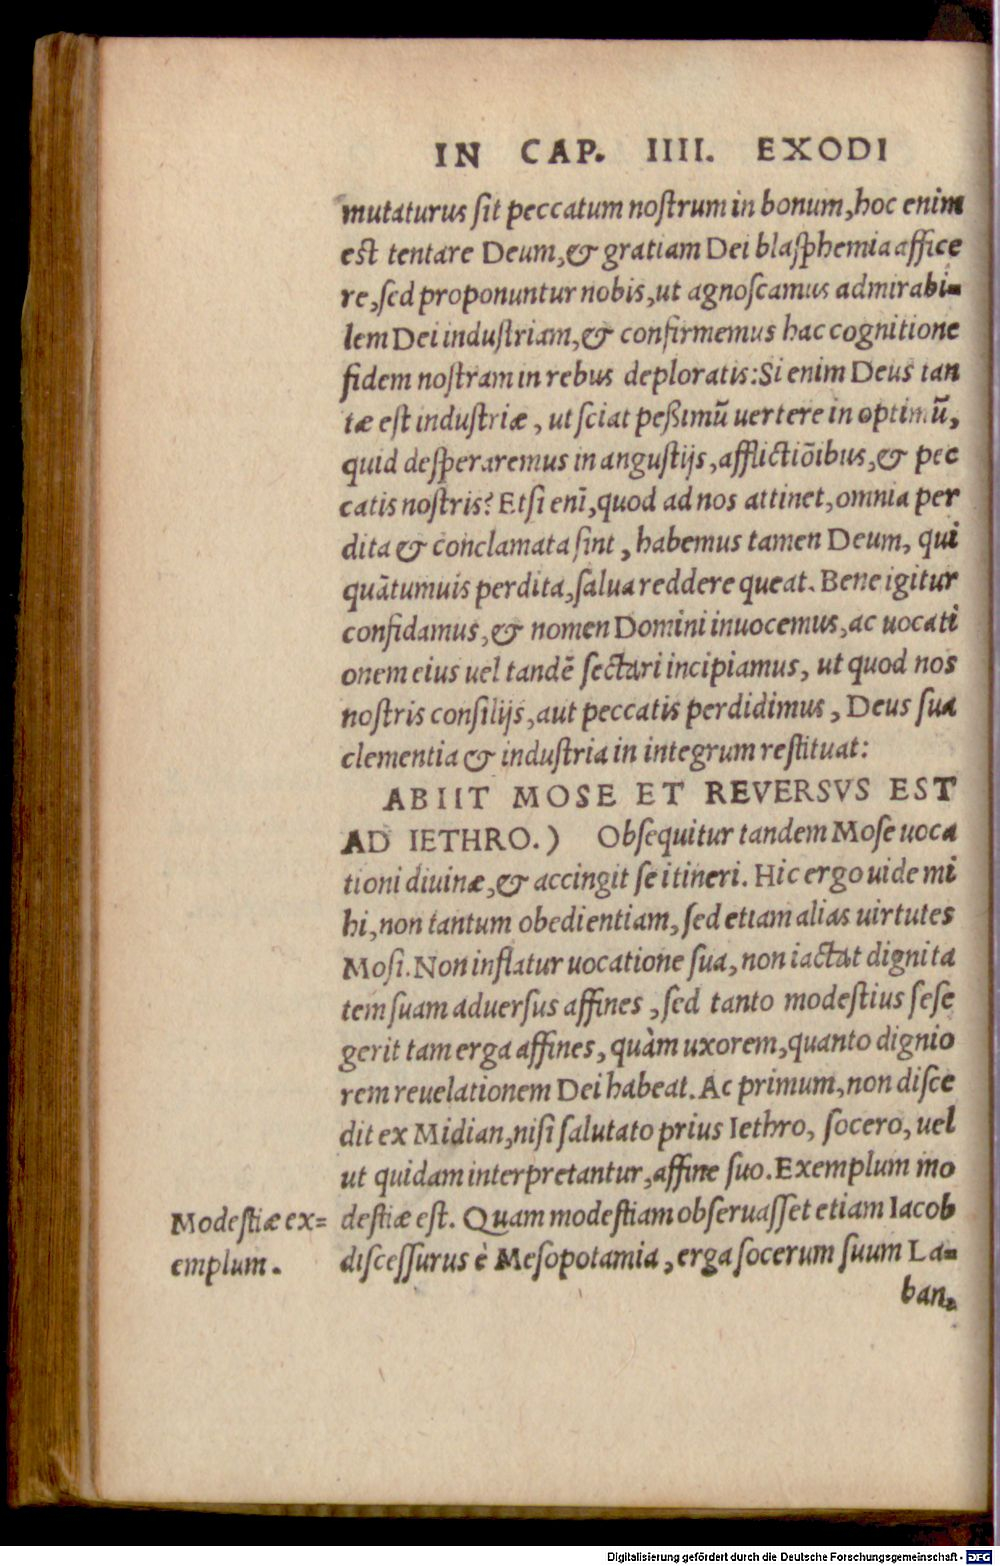 IN CAP. IIII. EXODI
mutaturus ſit peccatum noſtrum in bonum, hoc enim
eſt tentare Deum, & gratiam Dei blaſphemia affice
re, ſed proponuntur nobis, ut agnoſcamus admirabi-
lem Dei induſtriam, & confirmemus hac cognitione
fidem noſtram in rebus deploratis: Si enim Deus tan
tæ eſt induſtriæ, ut ſciat peßimū uertere in optimū,
quid deſperaremus in anguſtijs, afflictiōibus, & pec
catis noſtris? Etſi enī, quod ad nos attinet, omnia per
dita & conclamata ſint, habemus tamen Deum, qui
quātumuis perdita, ſalua reddere queat. Bene igitur
confidamus, & nomen Domini inuocemus, ac uocati
onem eius uel tandē ſectari incipiamus, ut quod nos
noſtris conſilijs, aut peccatis perdidimus, Deus ſua
clementia & induſtria in integrum reſtituat:
ABIIT MOSE ET REVERSVS EST
AD IETHRO.) Obſequitur tandem Moſe uoca
tioni diuinæ, & accingit ſe itineri. Hic ergo uide mi
hi, non tantum obedientiam, ſed etiam alias uirtutes
Moſi. Non inflatur uocatione ſua, non iactat dignita
tem ſuam aduerſus affines, ſed tanto modeſtius ſeſe
gerit tam erga affines, quàm uxorem, quanto dignio
rem reuelationem Dei habeat. Ac primum, non diſce
dit ex Midian, niſi ſalutato prius Iethro, ſocero, uel
ut quidam interpretantur, affine ſuo. Exemplum mo
Modeſtiæ ex= deſtiæ eſt. Quam modeſtiam obſeruaſſet etiam Iacob
emplum. diſceſſurus è Meſopotamia, erga ſocerum ſuum La-
ban,
Digitalisierung gefördert durch die Deutsche Forschungsgemeinschaft - DFG